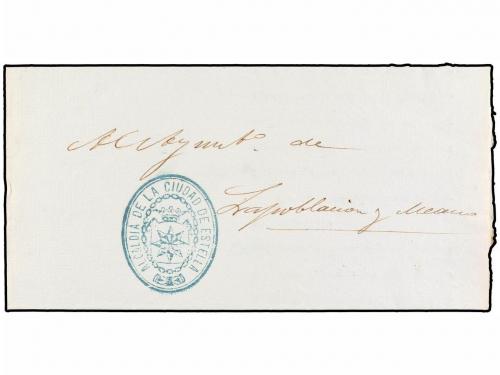 Al Ayunto. de
Lapoblacion y Meano
ALCALDIA DE LA CIUDAD DE ESTELLA